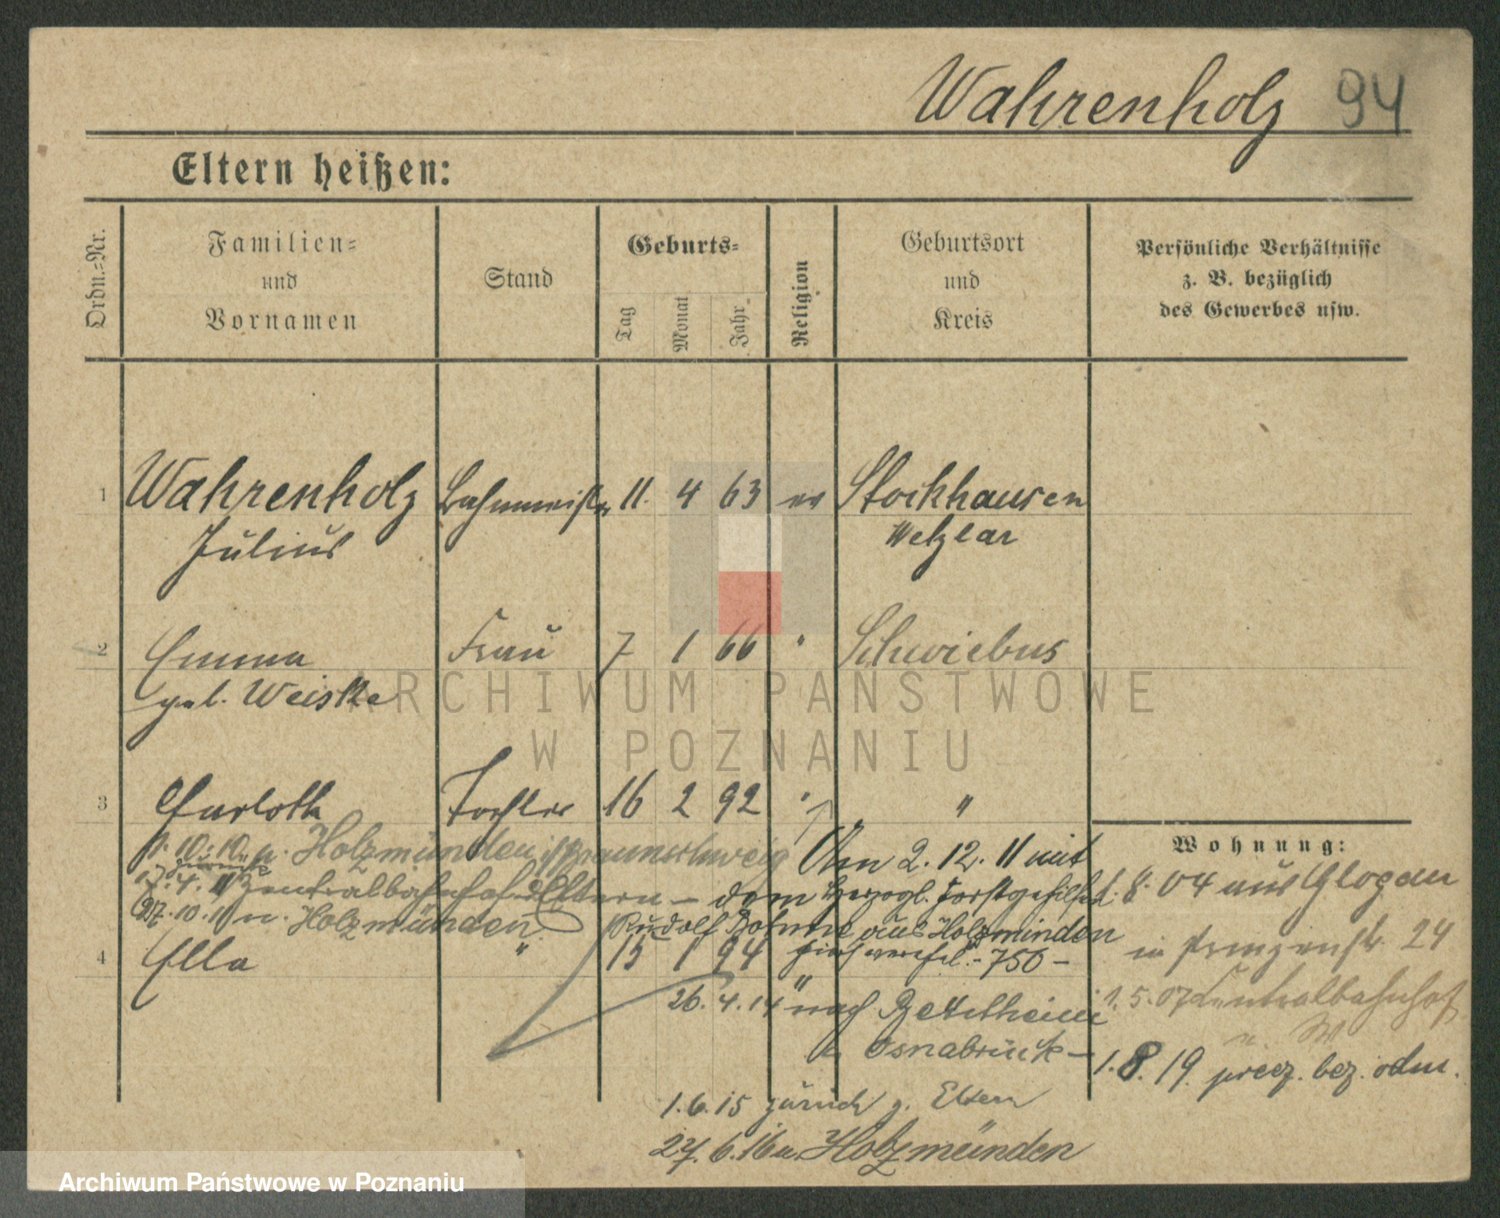 Wahrenholz 94
Eltern heißen:
Ordn.-Nr.
Familien-
und
Vornamen
Stand
Geburts-
Tag
Monat
Jahr
Religion
Geburtsort
und
Kreis
Persönliche Verhältnisse
z. B. bezüglich
des Gewerbes usw.
1 Wahrenholz Bahnmeister 11. 4 63 ev Stockhausen
Julius Wetzlar
2 Emma Frau 7 1 66 " Schwiebus
geb. Weiske
3 Charlotte Tochter 16 2 92 " "
Wohnung:
1. 10. 10. n. Holzmünden Braunschweig
Am 2. 12. 11 mit
zurück
4. 11 Zentralbahnhof Eltern — dem Herzogl. Forstgehilfen
1. 8. 04 aus Glogau
27. 10. 11 n. Holzmünden
Rudolf aus Holzminden
in Prinzenstr. 24
4 Ella " 15 1 94 - 750 -
26. 4. 14 nach
1. 5. 07 Zentralbahnhof
Osnabrück —
1. 8. 19.
1. 6. 15 zurück z. Eltern
27. 6. 16 n. Holzmünden
ARCHIWUM PAŃSTWOWE
W POZNANIU
Archiwum Państwowe w Poznaniu